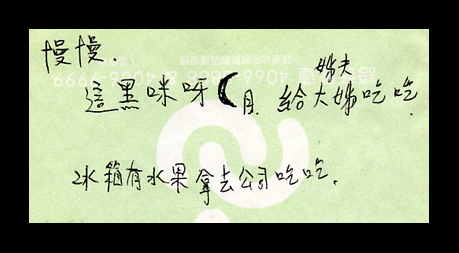 慢慢.
姊夫
這黑咪呀 月. 給大姊吃吃.
冰箱有水果拿去公司吃吃.